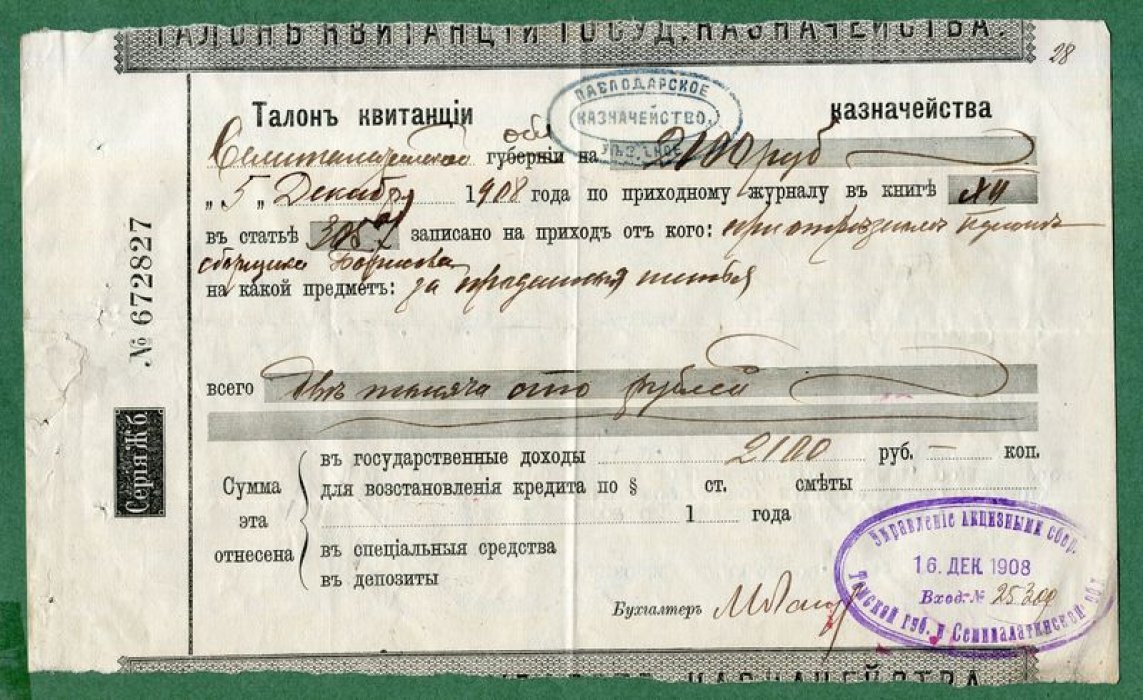 ТАЛОНЪ КВИТАНЦІИ ГОСУД. КАЗНАЧЕЙСТВА.
28
Талонъ квитанціи
ПАВЛОДАРСКОЕ
КАЗНАЧЕЙСТВО,
УѢЗДНОЕ
казначейства
Семипалатинской обл губерніи на 2100 руб
„ 5 „ Декабря 1908 года по приходному журналу въ книгѣ XII
въ статьѣ записано на приходъ отъ кого:
сборщика Борисова
на какой предметъ: за проданныя питья
всего двѣ тысяча сто рублей
Сумма эта отнесена
въ государственные доходы 2100 руб. — коп.
для возстановленія кредита по § ст. смѣты
1 года
въ спеціальныя средства
въ депозиты
Бухгалтеръ
№ 672827
Серія Жб
Управленіе акцизными сбор.
16. ДЕК 1908
Вход. № 25300
Томской губ. и Семипалатинской обл
КАЗНАЧЕЙСТВА